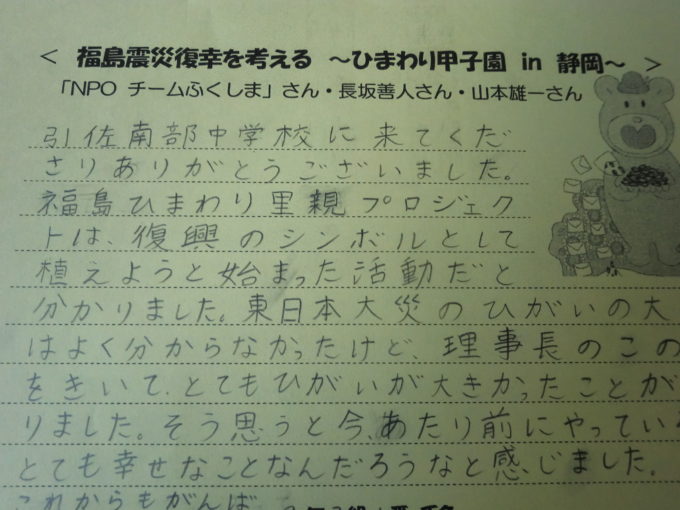 ＜ 福島震災復幸を考える ～ひまわり甲子園 in 静岡～ ＞
「NPO チームふくしま」さん・長坂善人さん・山本雄一さん
引佐南部中学校に来てくだ
さりありがとうございました。
福島ひまわり里親プロジェク
トは、復興のシンボルとして
植えようと始まった活動だと
分かりました。東日本大災のひがいの大
はよく分からなかったけど、理事長のこの
をきいて、とてもひがいが大きかったことが
りました。そう思うと今、あたり前にやってい
とても幸せなことなんだろうなと感じました。
これからもがんば